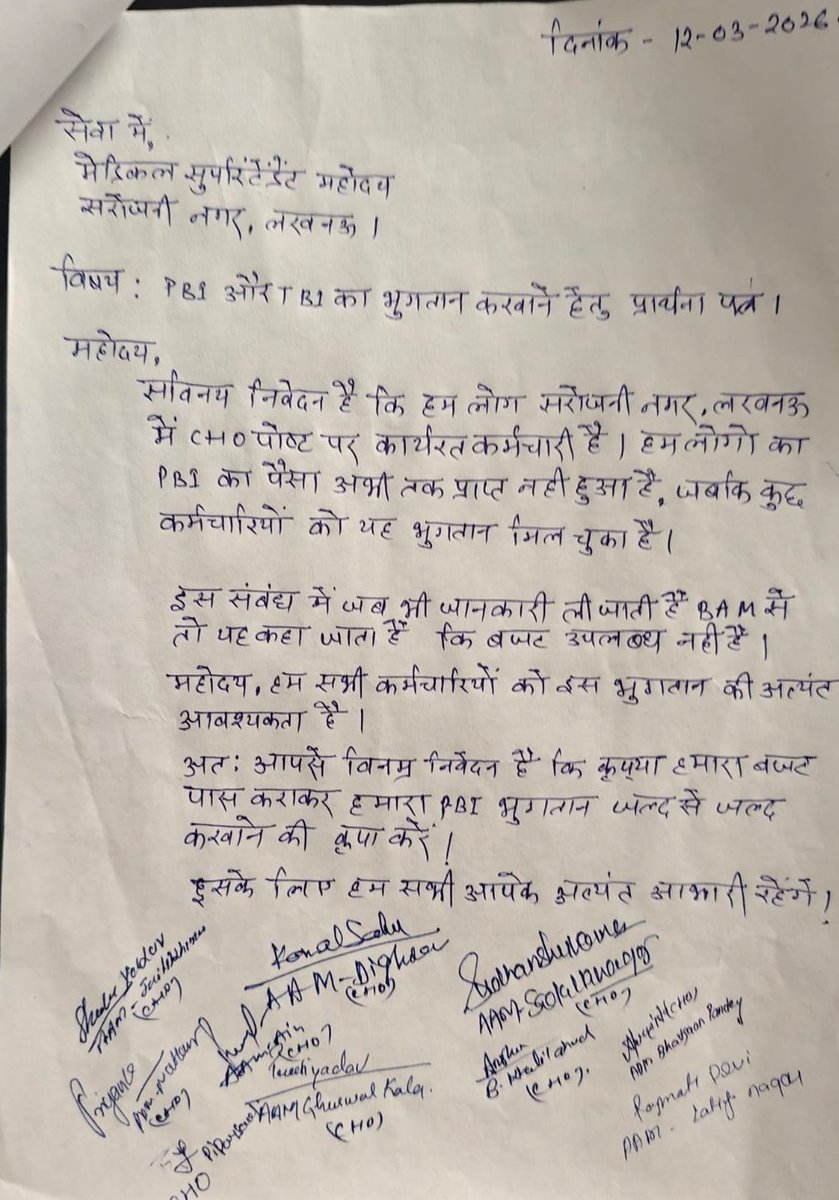 दिनांक - 12-03-2026
सेवा में,
मेडिकल सुपरिंटेंडेंट महोदय
सरोजनी नगर, लखनऊ ।
विषय : PBI और TBI का भुगतान करवाने हेतु प्रार्थना पत्र ।
महोदय,
सविनय निवेदन है कि हम लोग सरोजनी नगर, लखनऊ
में CHO पोस्ट पर कार्यरत कर्मचारी है । हम लोगो का
PBI का पैसा अभी तक प्राप्त नही हुआ है, जबकि कुछ
कर्मचारियों को यह भुगतान मिल चुका है ।
इस संबंध में जब भी जानकारी ली जाती है BAM से
तो यह कहा जाता है कि बजट उपलब्ध नही है ।
महोदय, हम सभी कर्मचारियों को इस भुगतान की अत्यंत
आवश्यकता है ।
अत: आपसे विनम्र निवेदन है कि कृप्या हमारा बजट
पास कराकर हमारा PBI भुगतान जल्द से जल्द
करवाने की कृपा करें !
इसके लिए हम सभी आपके अत्यंत आभारी रहेंगे !
Komal Sahu
AAM-
(CHO)
Yadav
AAM-
(CHO)
AAM-
(CHO)
(CHO)
Priyanka
AAM-
(CHO)
yadav
AAM Ghuswal Kala.
(CHO)
B. Khalilabad
(CHO).
(CHO)
AAM.
Rajmati Devi
AAM- nagar
CHO